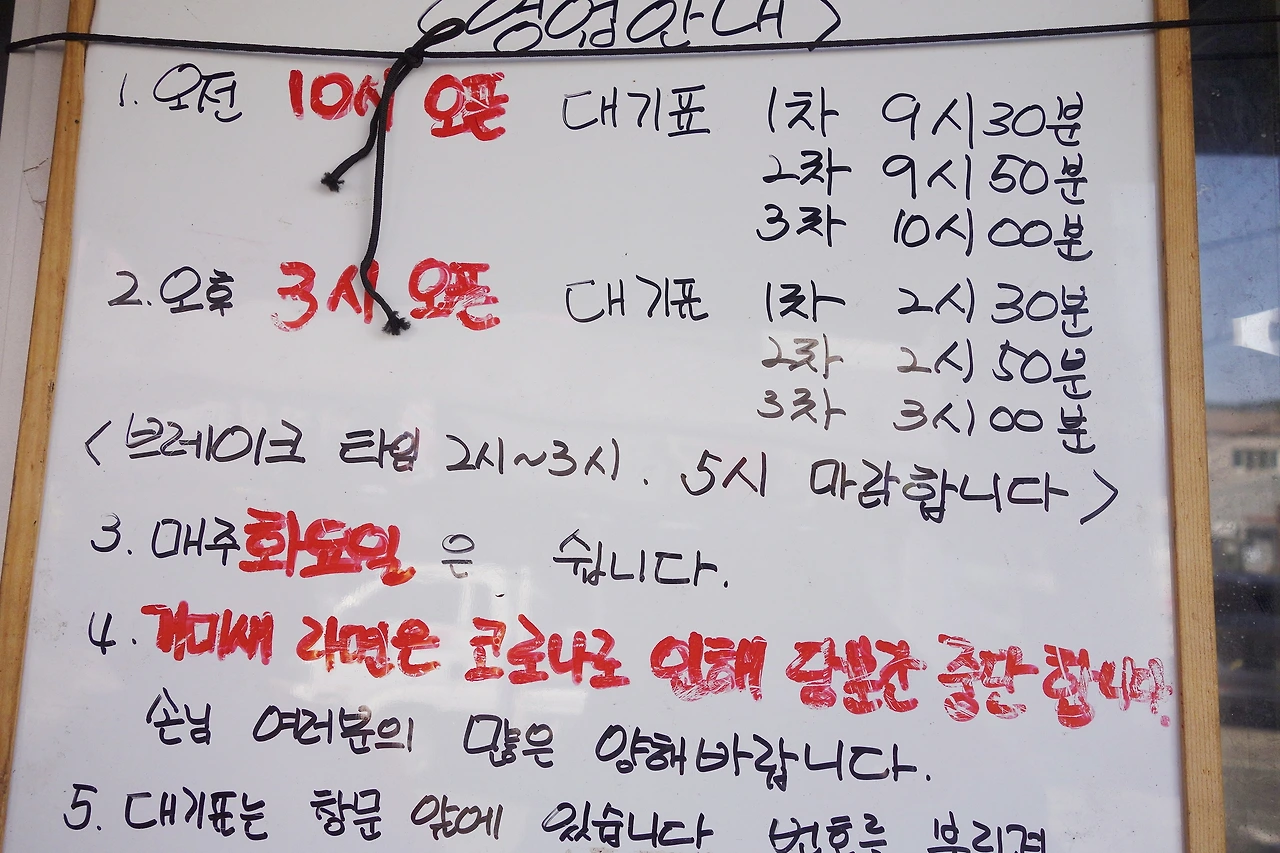 <영업안내>
1. 오전 10시 오픈 대기표 1차 9시 30분
2차 9시 50분
3차 10시 00분
2. 오후 3시 오픈 대기표 1차 2시 30분
2차 2시 50분
3차 3시 00분
<브레이크 타임 2시~3시. 5시 마감합니다>
3. 매주 화요일은 쉽니다.
4. 개미새 라면은 코로나로 인해 당분간 중단 합니다.
손님 여러분의 많은 양해바랍니다.
5. 대기표는 창문 앞에 있습니다 번호를